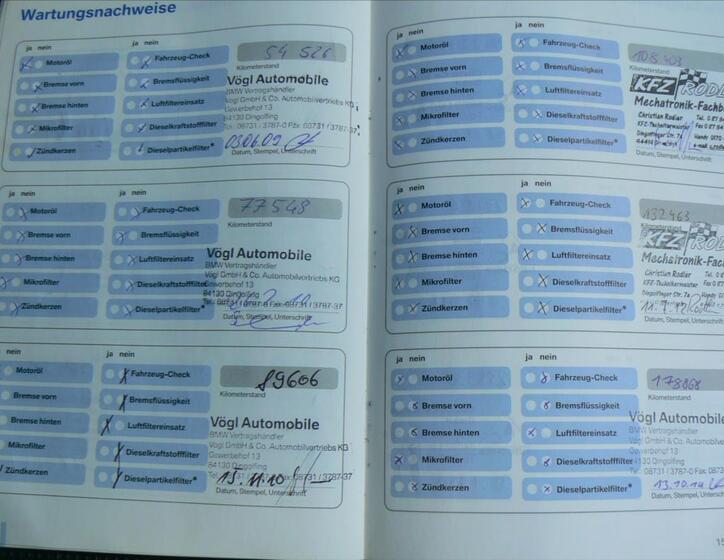 Wartungsnachweise
ja nein ja nein
Motoröl Fahrzeug-Check 54 526
Kilometerstand
Bremse vorn Bremsflüssigkeit Vögl Automobile
BMW Vertragshändler
Bremse hinten Luftfiltereinsatz Vögl GmbH & Co. Automobilvertriebs KG
Gewerbehof 13
84130 Dingolfing
Mikrofilter Dieselkraftstofffilter Tel. 08731 / 3787-0 Fax 08731 / 3787-37
Zündkerzen Dieselpartikelfilter*
Datum, Stempel, Unterschrift
ja nein ja nein
Motoröl Fahrzeug-Check 77548
Kilometerstand
Bremse vorn Bremsflüssigkeit
Vögl Automobile
BMW Vertragshändler
Bremse hinten Luftfiltereinsatz Vögl GmbH & Co. Automobilvertriebs KG
Gewerbehof 13
Mikrofilter Dieselkraftstofffilter 84130 Dingolfing
Zündkerzen Dieselpartikelfilter*
Datum, Stempel, Unterschrift
nein ja nein
Motoröl Fahrzeug-Check 89606
Kilometerstand
Bremse vorn Bremsflüssigkeit
Vögl Automobile
Bremse hinten Luftfiltereinsatz BMW Vertragshändler
Vögl GmbH & Co. Automobilvertriebs KG
Mikrofilter Dieselkraftstofffilter Gewerbehof 13
84130 Dingolfing
Zündkerzen Dieselpartikelfilter* 15.11.10
Datum, Stempel, Unterschrift
ja nein ja nein
Motoröl Fahrzeug-Check 108 403
Kilometerstand
Bremse vorn Bremsflüssigkeit KFZ
Bremse hinten Luftfiltereinsatz Mechatronik-Fachb
Mikrofilter Dieselkraftstofffilter Christian Rodler
KFZ-Technikermeister
Zündkerzen Dieselpartikelfilter*
Datum, Stempel, Unterschrift
ja nein ja nein
Motoröl Fahrzeug-Check 132 463
Kilometerstand
Bremse vorn Bremsflüssigkeit KFZ
Bremse hinten Luftfiltereinsatz Mechatronik-Fac
Christian Rodler
Mikrofilter Dieselkraftstofffilter KFZ-Technikermeister
Zündkerzen Dieselpartikelfilter*
Datum, Stempel, Unterschrift
ja nein ja nein
Motoröl Fahrzeug-Check 178868
Kilometerstand
Bremse vorn Bremsflüssigkeit Vögl Automobile
BMW Vertragshändler
Bremse hinten Luftfiltereinsatz Vögl GmbH & Co. Automobilvert
Gewerbehof 13
Mikrofilter Dieselkraftstofffilter 84130 Dingolfing
Tel. 08731 / 3787-0 Fax 08731
Zündkerzen Dieselpartikelfilter*
Datum, Stempel, Unterschrift